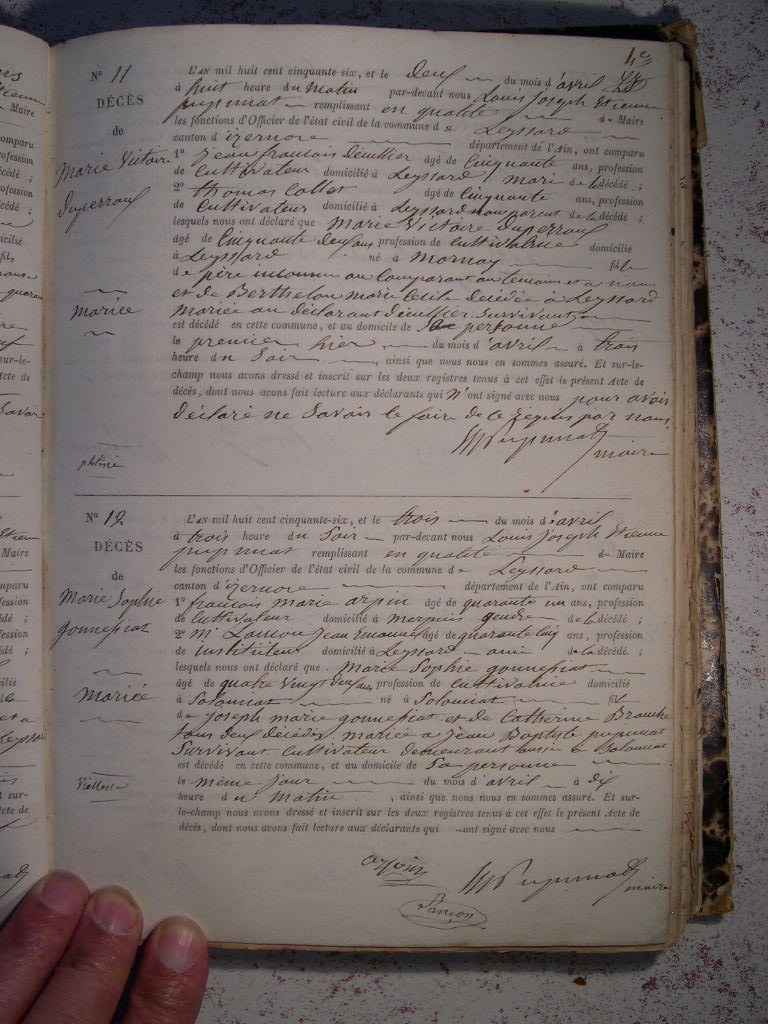 N° 11
DÉCÈS
de
Marie Victoire
Duperroux
mariée
phtisie
L'AN mil huit cent cinquante-six, et le deux du mois d'avril
à huit heure du matin par-devant nous Louis Joseph Etienne
pupunat remplissant en qualité de Maire
les fonctions d'Officier de l'état civil de la commune de Leyssard
canton d'izernore département de l'Ain, ont comparu
1° jean francois âgé de Cinquante ans, profession
de Cultivateur domicilié à Leyssard mari de la décédé ;
2° thomas Collet âgé de Cinquante ans, profession
de Cultivateur domicilié à Leyssard non parent de la décédé ;
lesquels nous ont déclaré que Marie Victoire Duperroux
âgé de Cinquante deux ans profession de Cultivatrice domicilié
à Leyssard né à Mornay fille
de père inconnu au Comparant au temoin et a nous
et de Berthelon marie décédée à Leyssard
Mariée au déclarant Survivant
est décédé en cette commune, et au domicile de Sa personne
le premier hier du mois d'avril à trois
heure du Soir ainsi que nous nous en sommes assuré. Et sur-le-
champ nous avons dressé et inscrit sur les deux registres tenus à cet effet le présent Acte de
décès, dont nous avons fait lecture aux déclarants qui n'ont signé avec nous pour avoir
déclaré ne Savoir le faire de ce requis par nous.
Pupunat
maire
N° 12
DÉCÈS
de
Marie Sophie
gonnefiat
Mariée
Viellesse
L'AN mil huit cent cinquante-six, et le trois du mois d'avril
à trois heure du Soir par-devant nous Louis Joseph Etienne
pupunat remplissant en qualité de Maire
les fonctions d'Officier de l'état civil de la commune de Leyssard
canton d'izernore département de l'Ain, ont comparu
1° francois marie arpin âgé de quarante un ans, profession
de Cultivateur domicilié à merpuis gendre de la décédé ;
2° Mr Lançon Jean Emanuel âgé de quarante Cinq ans, profession
de instituteur domicilié à Leyssard ami de la décédé ;
lesquels nous ont déclaré que Marie Sophie gonnefiat
âgé de quatre vingt deux ans, profession de Cultivatrice domicilié
à Solomiat né à Solomiat fille
de Joseph marie gonnefiat et de Catherine
tous deux décédés, mariée a Jean Baptiste pupunat
Survivant Cultivateur demeurant aussi a Solomiat
est décédé en cette commune, et au domicile de Sa personne
le même jour du mois d'avril à dix
heure du Matin, ainsi que nous nous en sommes assuré. Et sur-
le-champ nous avons dressé et inscrit sur les deux registres tenus à cet effet le présent Acte de
décès, dont nous avons fait lecture aux déclarants qui ont signé avec nous
Pupunat
maire
Lançon